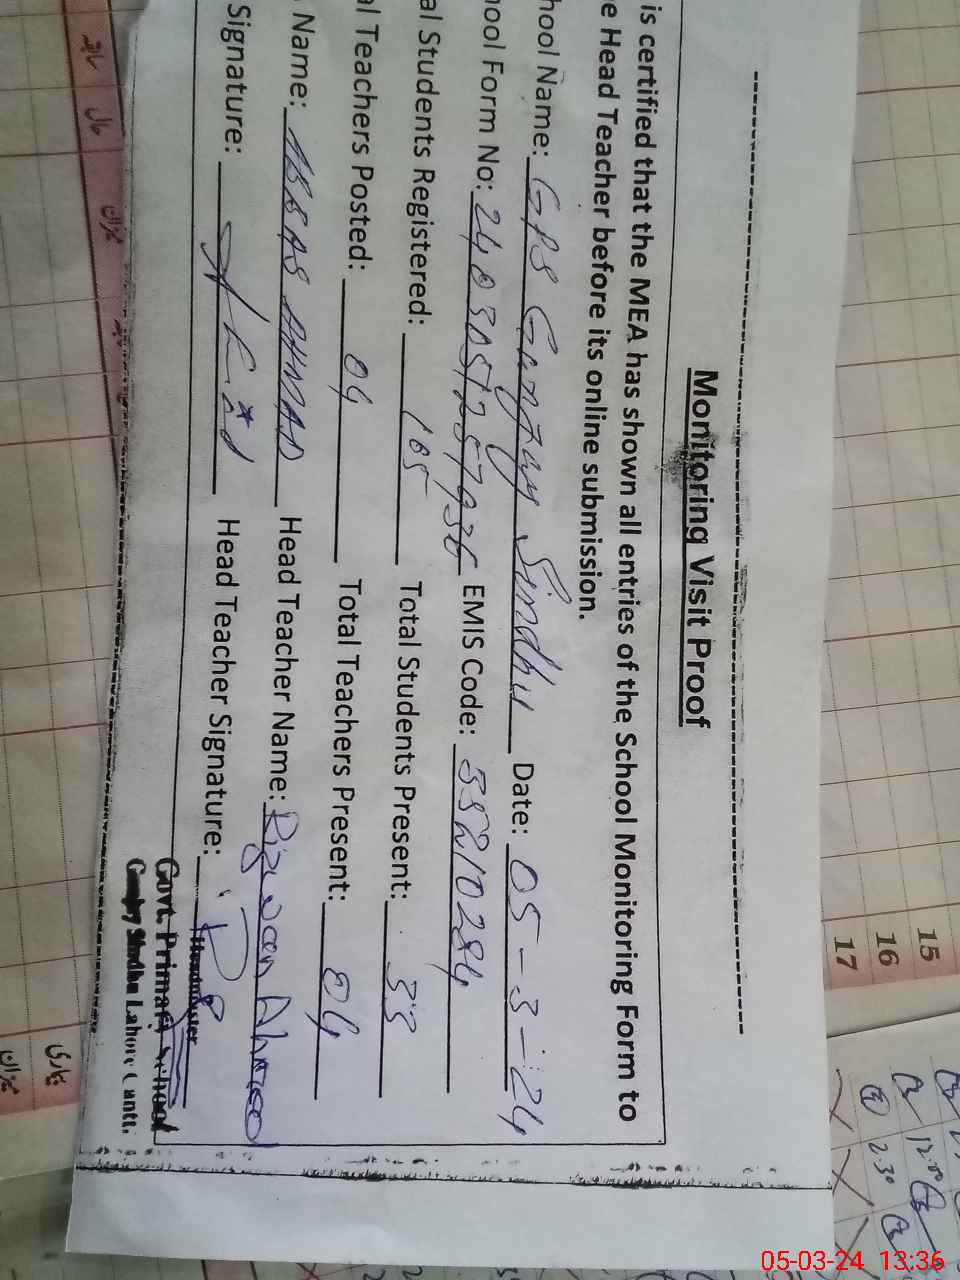 Monitoring Visit Proof
is certified that the MEA has shown all entries of the School Monitoring Form to
e Head Teacher before its online submission.
hool Name: GPS Ganjay Sindhu Date: 05-3-24
hool Form No: 2403051257936 EMIS Code: 35210284
al Students Registered: 165 Total Students Present: 33
al Teachers Posted: 04 Total Teachers Present: 04
Name: ABBAS AHMAD Head Teacher Name: Rizwan Ahmed
Signature: Head Teacher Signature:
Headmaster
Govt. Primary School
Ganjay Sindhu Lahore Cantt.
15
16
17
12.00
2.30
05-03-24 13:36